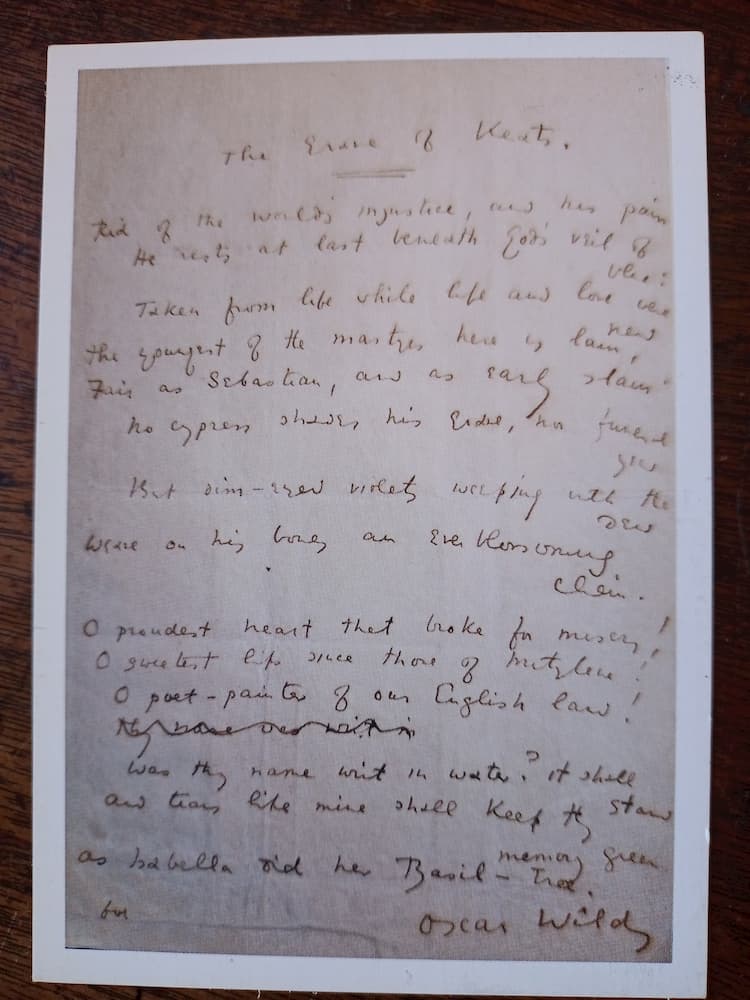 The Grave of Keats.
Rid of the world's injustice, and his pain
He rests at last beneath God's veil of
blue:
Taken from life while life and love were
new
the youngest of the martyrs here is lain,
Fair as Sebastian, and as early slain
No cypress shades his grave, nor funeral
yew
But dim-eyed violets weeping with the
dew
Weave on his bones an ever blossoming
chain.
O proudest heart that broke for misery!
O sweetest lips since those of Mitylene!
O poet-painter of our English land!
Thy name was writ in
Was thy name writ in water? it shall
stand
and tears like mine shall keep thy
memory green
as Isabella did her Basil-Tree.
Oscar Wilde